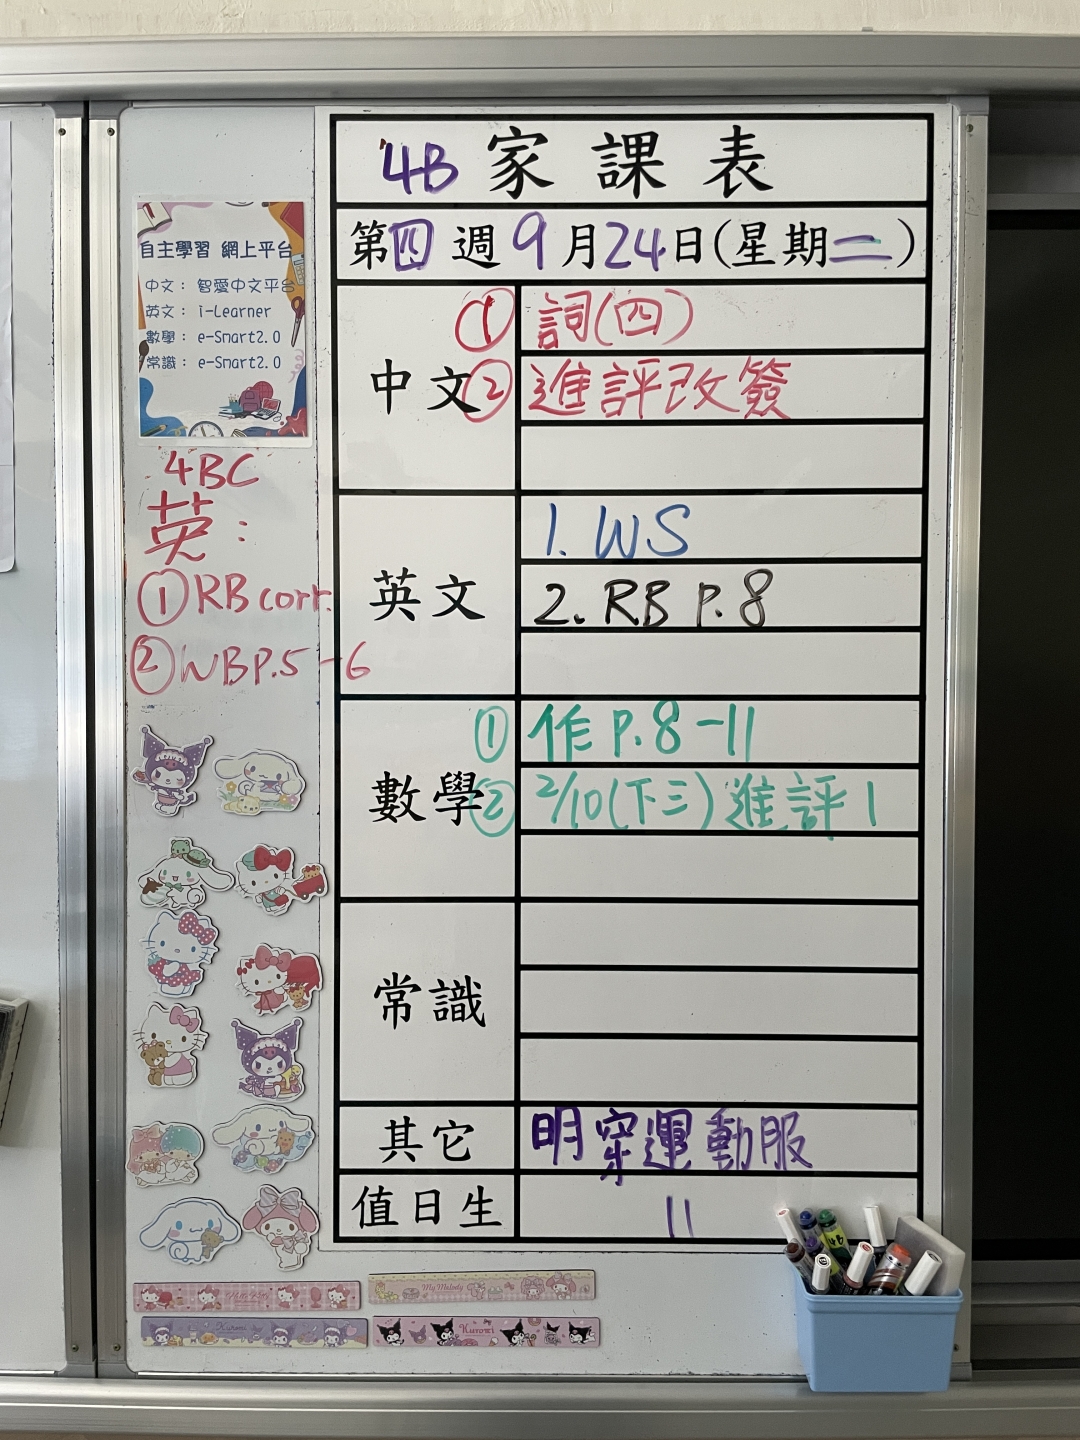 4B 家課表
第四週9月24日(星期二)
中文
① 詞(四)
② 進評改簽
英文
1. WS
2. RB P.8
數學
① 作 P.8-11
② 2/10(下三)進評1
常識
其它
明穿運動服
值日生
11
自主學習 網上平台
中文： 智愛中文平台
英文： i-Learner
數學： e-Smart2.0
常識： e-Smart2.0
4BC
英：
① RB corr.
② WB P.5-6
My Melody
Kuromi